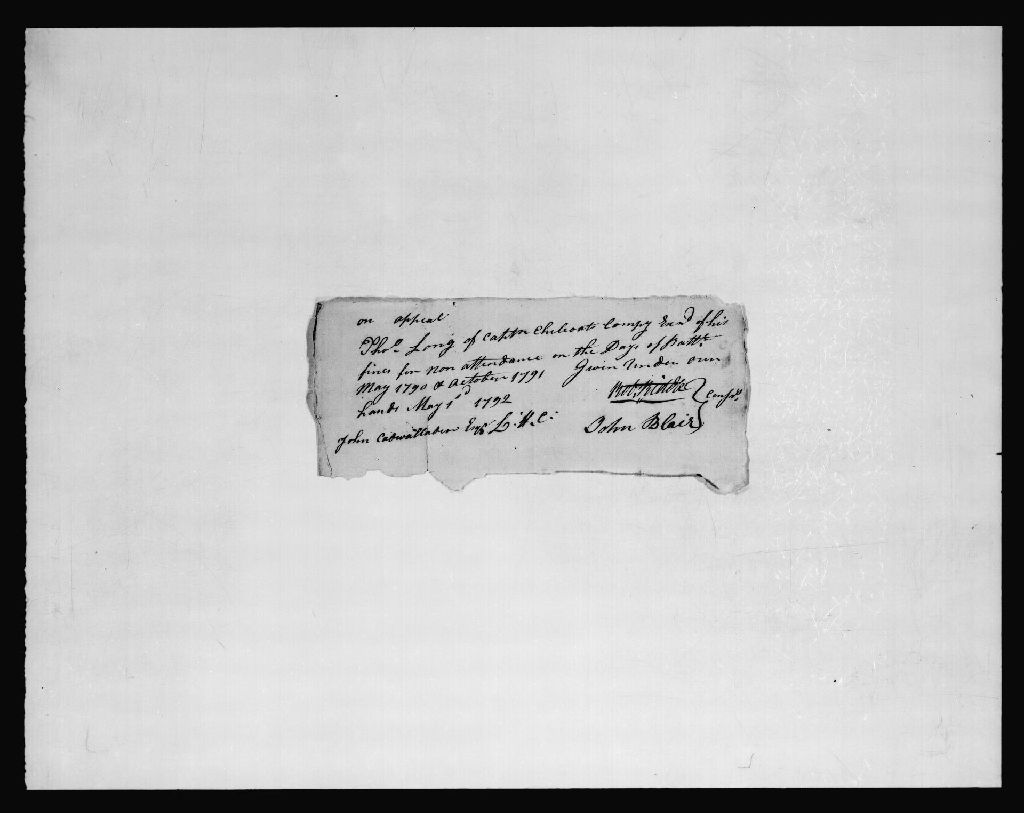 on appeal
Thos. Long of Captn Chilcoats Compy Exnd of his
fines for non attendance on the Days of Battn.
May 1790 & October 1791 Givin Under owr
hands May 1st 1792
Robt. Riddle
John Cadwallader Esqr L. H. C. John Blair